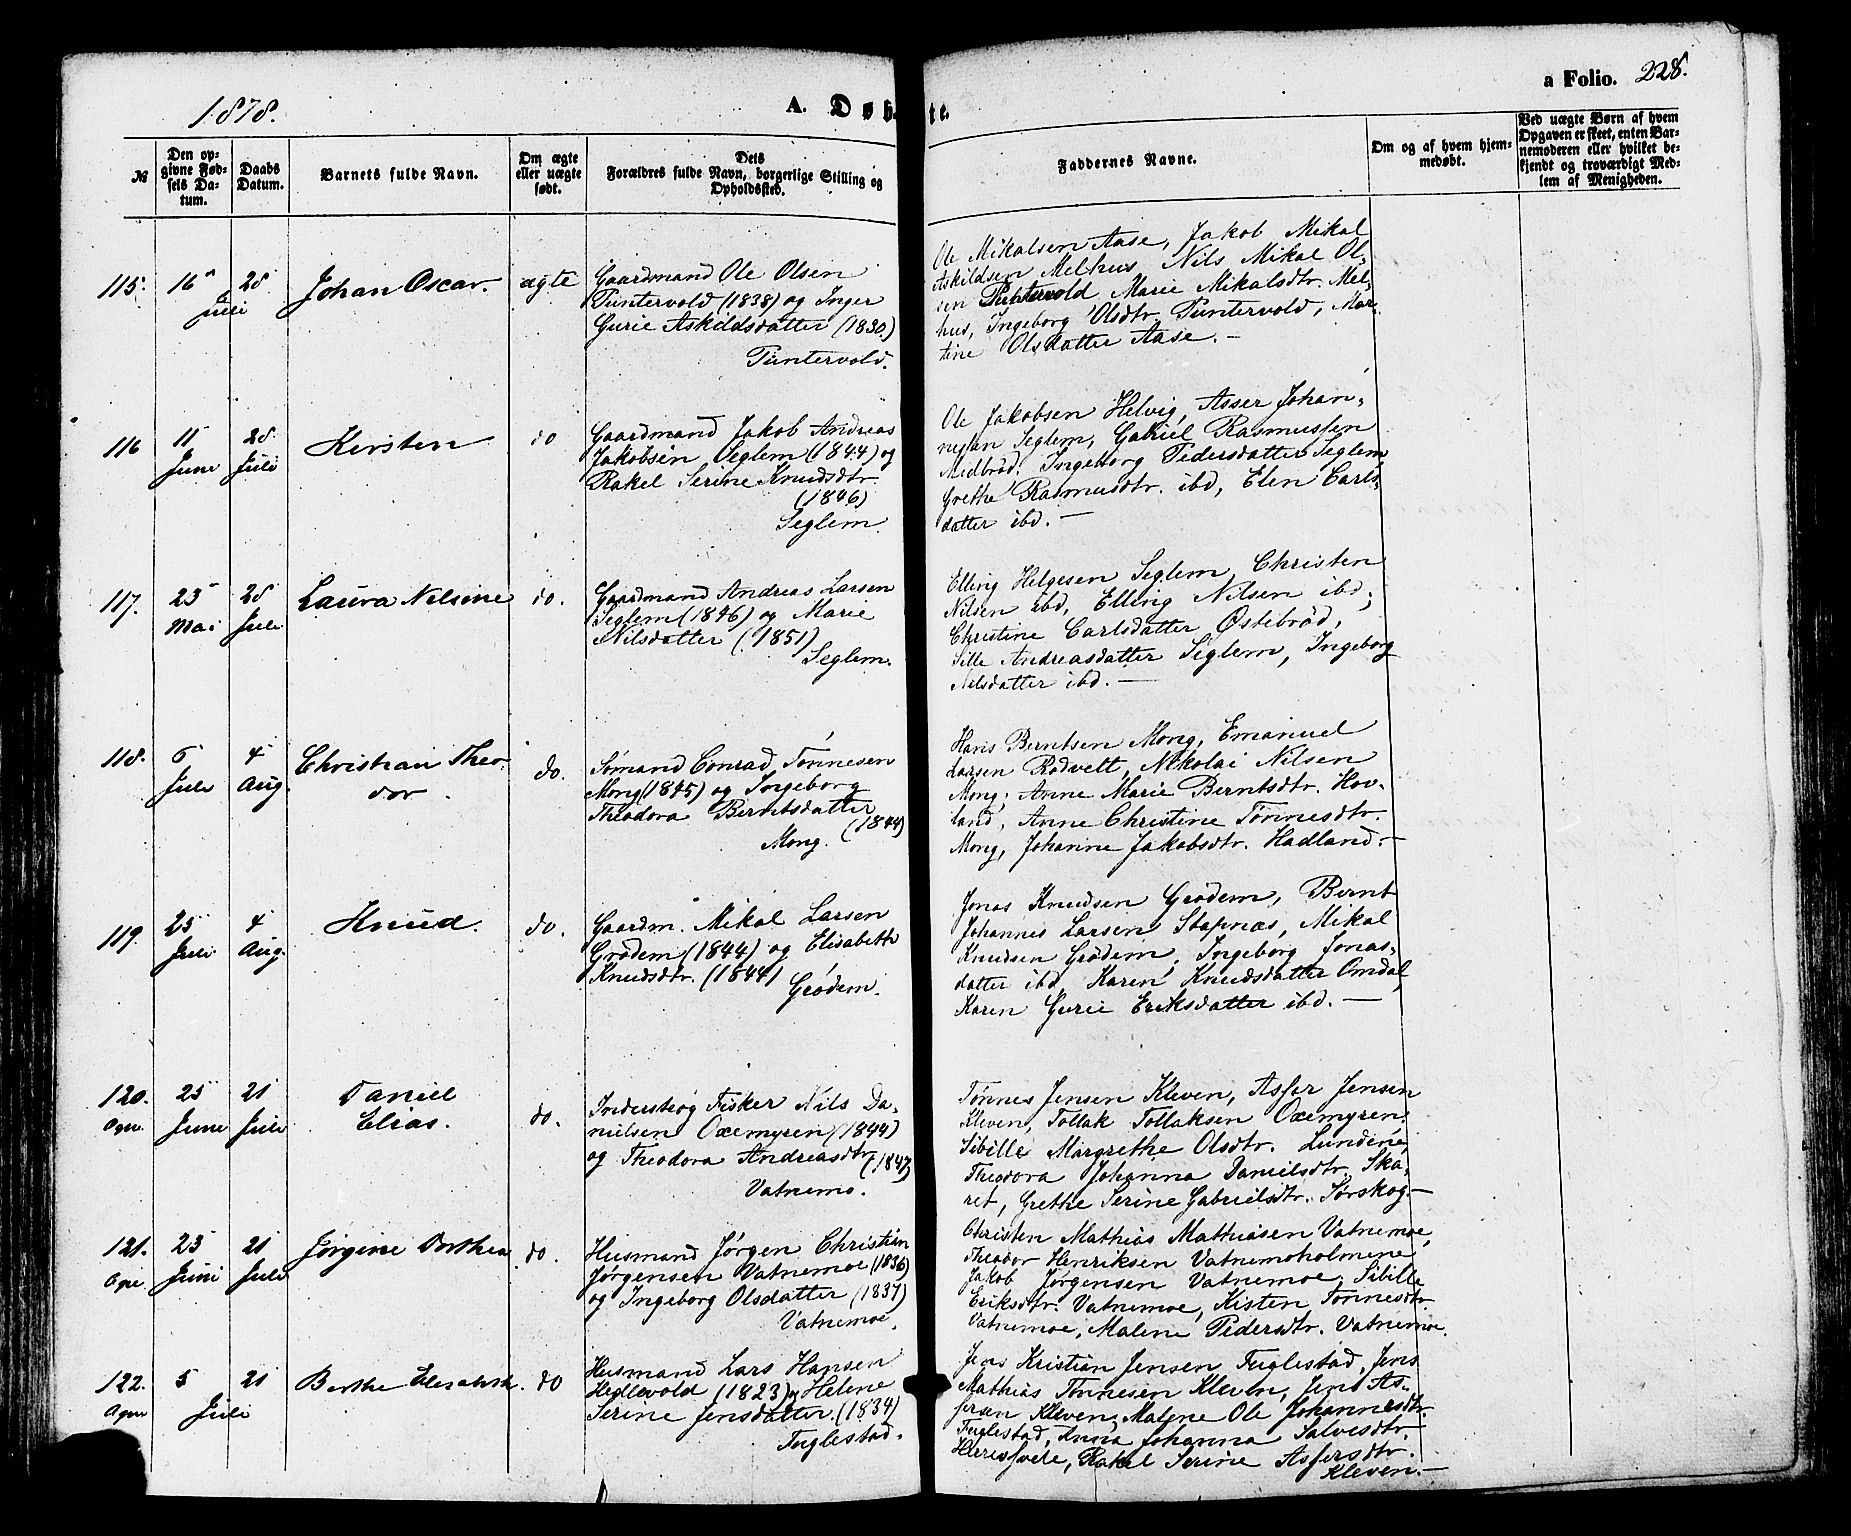 1878.
A. Døbte.
a Folio. 228.
№
Den opgivne Fødsels Datum.
Daabs Datum.
Barnets fulde Navn.
Om ægte eller uægte født.
Dets Forældres fulde Navn, borgerlige Stilling og Opholdssted.
Faddernes Navne.
Om og af hvem hjemmedøbt.
Ved uægte Børn af hvem Opgaven er skeet, enten Barnemoderen eller hvilket bekjendt og troværdigt Medlem af Menigheden.
115. 16 28 Juli
Johan Oscar.
ægte
Gaardmand Ole Olsen
Puntervold (1838) og Inger
Gurie Askildsdatter (1830)
Puntervold.
Ole Mikalsen Aase, Jakob Mikal
Askildsen Melhus, Nils Mikal Ol-
sen Puntervold Marie Mikalsdtr. Mel-
hus, Ingeborg Olsdtr. Puntervold, Mar
tine Olsdatter Aase. —
116 11 Juni 28 Juli
Kirsten
do
Gaardmand Jakob Andreas
Jakobsen Seglem (1844) og
Rakel Serine Knudsdtr
(1846)
Seglem.
Ole Jakobsen Helvig, Asser Johan-
nessen Seglem, Gabriel Rasmussen
Medbrød. Ingeborg Pedersdatter Seglem,
Grethe Rasmusdtr. ibd, Elen Carls-
datter ibd. —
117. 23 Mai 28 Juli
Laura Nilsine
do.
Gaardmand Andreas Larsen
Seglem (1846) og Marie
Nilsdatter (1851)
Seglem.
Elling Helgesen Seglem, Christen
Nilsen ibd, Elling Nilsen ibd,
Christine Carlsdatter Østebrød,
Sille Andreasdatter Seglem, Ingeborg
Nilsdatter ibd. —
118. 6 Juli 4 Aug.
Christian Theo-
dor.
do.
Sømand Conrad Tønnesen
Mong (1845) og Ingeborg
Theodora Berntsdatter
(1844)
Mong.
Hans Berntsen Mong, Emanuel
Larsen Rødvelt, Nikolai Nilsen
Mong; Anne Marie Berntsdtr. Hov-
land, Anne Christine Tønnesdtr.
Mong, Johanne Jakobsdtr. Hadland. —
119. 25 Juli 4 Aug.
Knud.
do.
Gaardm. Mikal Larsen
Grødem (1844) og Elisabeth
Knudsdtr. (1844)
Grødem.
Jonas Knudsen Grødem, Bernt
Johannes Larsen Stapnæs, Mikal
Knudsen Grødem, Ingeborg Jonas-
datter ibd, Karen Knudsdatter Omdal,
Karen Gurie Eriksdatter ibd. —
120. Ogne 25 Juni 21 Juli
Daniel
Elias.
do.
Inderst og Fisker Nils Da-
nielsen Oxemyren (1844)
og Theodora Andreasdtr
(1847)
Vatnemo.
Tønnes Jensen Kleven, Asser Jensen
Kleven, Tollak Tollaksen Oxemyren.
Sibille Margrethe Olsdtr. Lundene,
Theodora Johanna Danielsdtr. Ska-
ret, Grethe Serine Gabrielsdtr. Sørskog. —
121. Ogne 23 Juni 21 Juli
Jørgine Dorthea
do.
Husmand Jørgen Christian
Jørgensen Vatnemoe (1836)
og Ingeborg Olsdatter (1837)
Vatnemoe.
Christen Mathias Mathiasen Vatnemoe,
Theodor Henriksen Vatnemoholmene
Jakob Jørgensen Vatnemoe, Sibille
Eriksdtr. Vatnemoe, Kisten Tønnesdtr.
Vatnemoe, Malene Pedersdtr. Vatnemoe.
122. Ogne 5 21 Juli
Berthe Elisabeth.
do
Husmand Lars Hansen
Hegllevold (1823) og Helene
Serine Jensdatter. (1834)
Fuglestad.
Jens Kristian Jensen Fuglestad, Jens
Mathias Tønnesen Kleven, Jens As-
Kleven, Malene Ole Johannesdtr.
Fuglestad, Anna Johanna Salvesdtr.
Rakel Serine Assersdtr.
Kleven. —